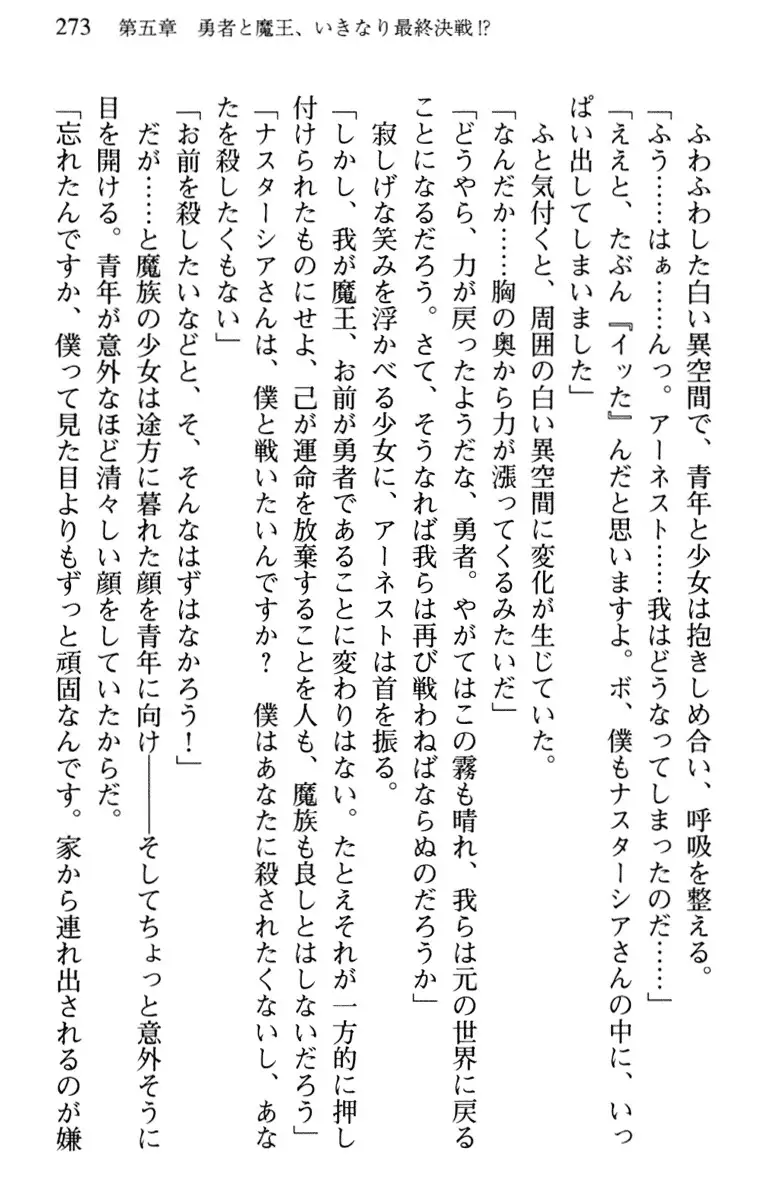 273　第五章　勇者と魔王、いきなり最終決戦!?
ふわふわした白い異空間で、青年と少女は抱きしめ合い、呼吸を整える。
「ふう……はぁ……んっ。アーネスト……我はどうなってしまったのだ……」
「ええと、たぶん『イッた』んだと思いますよ。ボ、僕もナスターシアさんの中に、いっ
ぱい出してしまいました」
ふと気付くと、周囲の白い異空間に変化が生じていた。
「なんだか……胸の奥から力が漲ってくるみたいだ」
「どうやら、力が戻ったようだな、勇者。やがてはこの霧も晴れ、我らは元の世界に戻る
ことになるだろう。さて、そうなれば我らは再び戦わねばならぬのだろうか」
寂しげな笑みを浮かべる少女に、アーネストは首を振る。
「しかし、我が魔王、お前が勇者であることに変わりはない。たとえそれが一方的に押し
付けられたものにせよ、己が運命を放棄することを人も、魔族も良しとはしないだろう」
「ナスターシアさんは、僕と戦いたいんですか？　僕はあなたに殺されたくないし、あな
たを殺したくもない」
「お前を殺したいなどと、そ、そんなはずはなかろう！」
だが……と魔族の少女は途方に暮れた顔を青年に向け――そしてちょっと意外そうに
目を開ける。青年が意外なほど清々しい顔をしていたからだ。
「忘れたんですか、僕って見た目よりもずっと頑固なんです。家から連れ出されるのが嫌